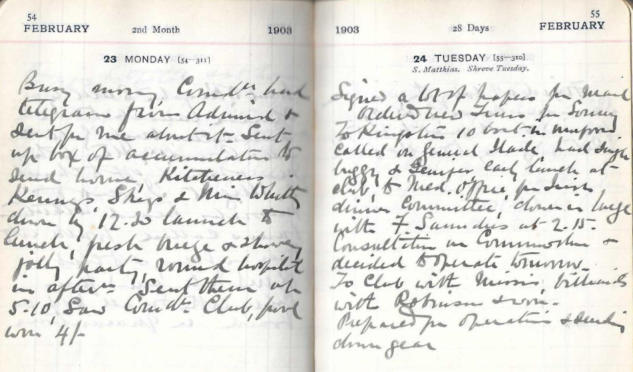 54
FEBRUARY 2nd Month 1903
23 MONDAY [54-311]
Busy morng, Comdr. had
telegram from Admiral &
sent for me about it. Sent
up box of accumulators to
send home,
down by 12.30 launch to
lunch, fresh breeze & showery
jolly party, round hospital
in aftern. Sent them up
5-10, Saw Comdr. Club, pool
won 4/-
55
1903 28 Days FEBRUARY
24 TUESDAY [55-310]
S. Matthias. Shrove Tuesday.
Signed a lot of papers for mail
Ordered new
To Kingston 10 boat in uniform
called on General had single
buggy & early lunch at
club, to Med. Office, for Irish
dinner Committee, down in barge
with F. Saunders at 2.15.
Consultation on Commodore &
decided to operate tomorrow.
To Club with billiards
with Robinson & won.
Prepared for operation & sending
down gear